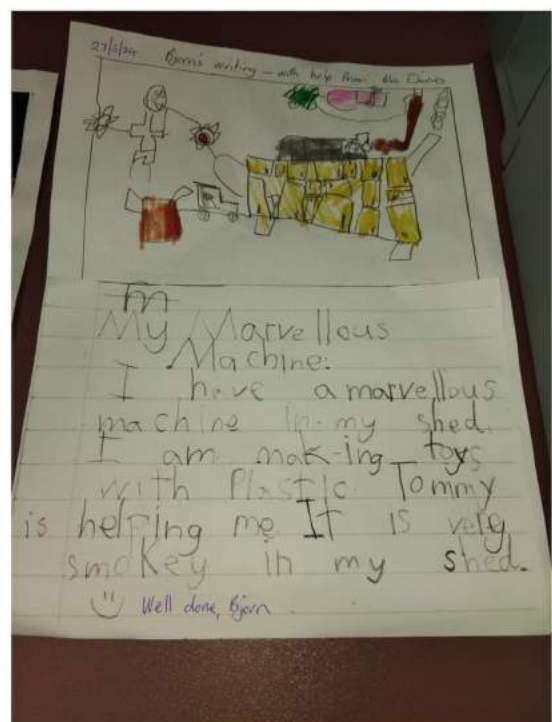 27/3/24 Bjorn's writing – with help from Mrs Davies
m
My Marvellous
Machine:
I have a marvellous
machine in my shed.
I am mak-ing toys
with Plastic. Tommy
is helping me It is very
smokey in my shed.
Well done, Bjorn